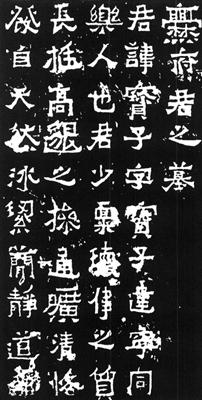 爨府君之墓
君諱寶子字寶子建寧同
樂人也君少稟瓌偉之質
長挺高邈之操通曠清恪
發自天然冰潔簡靜道兼